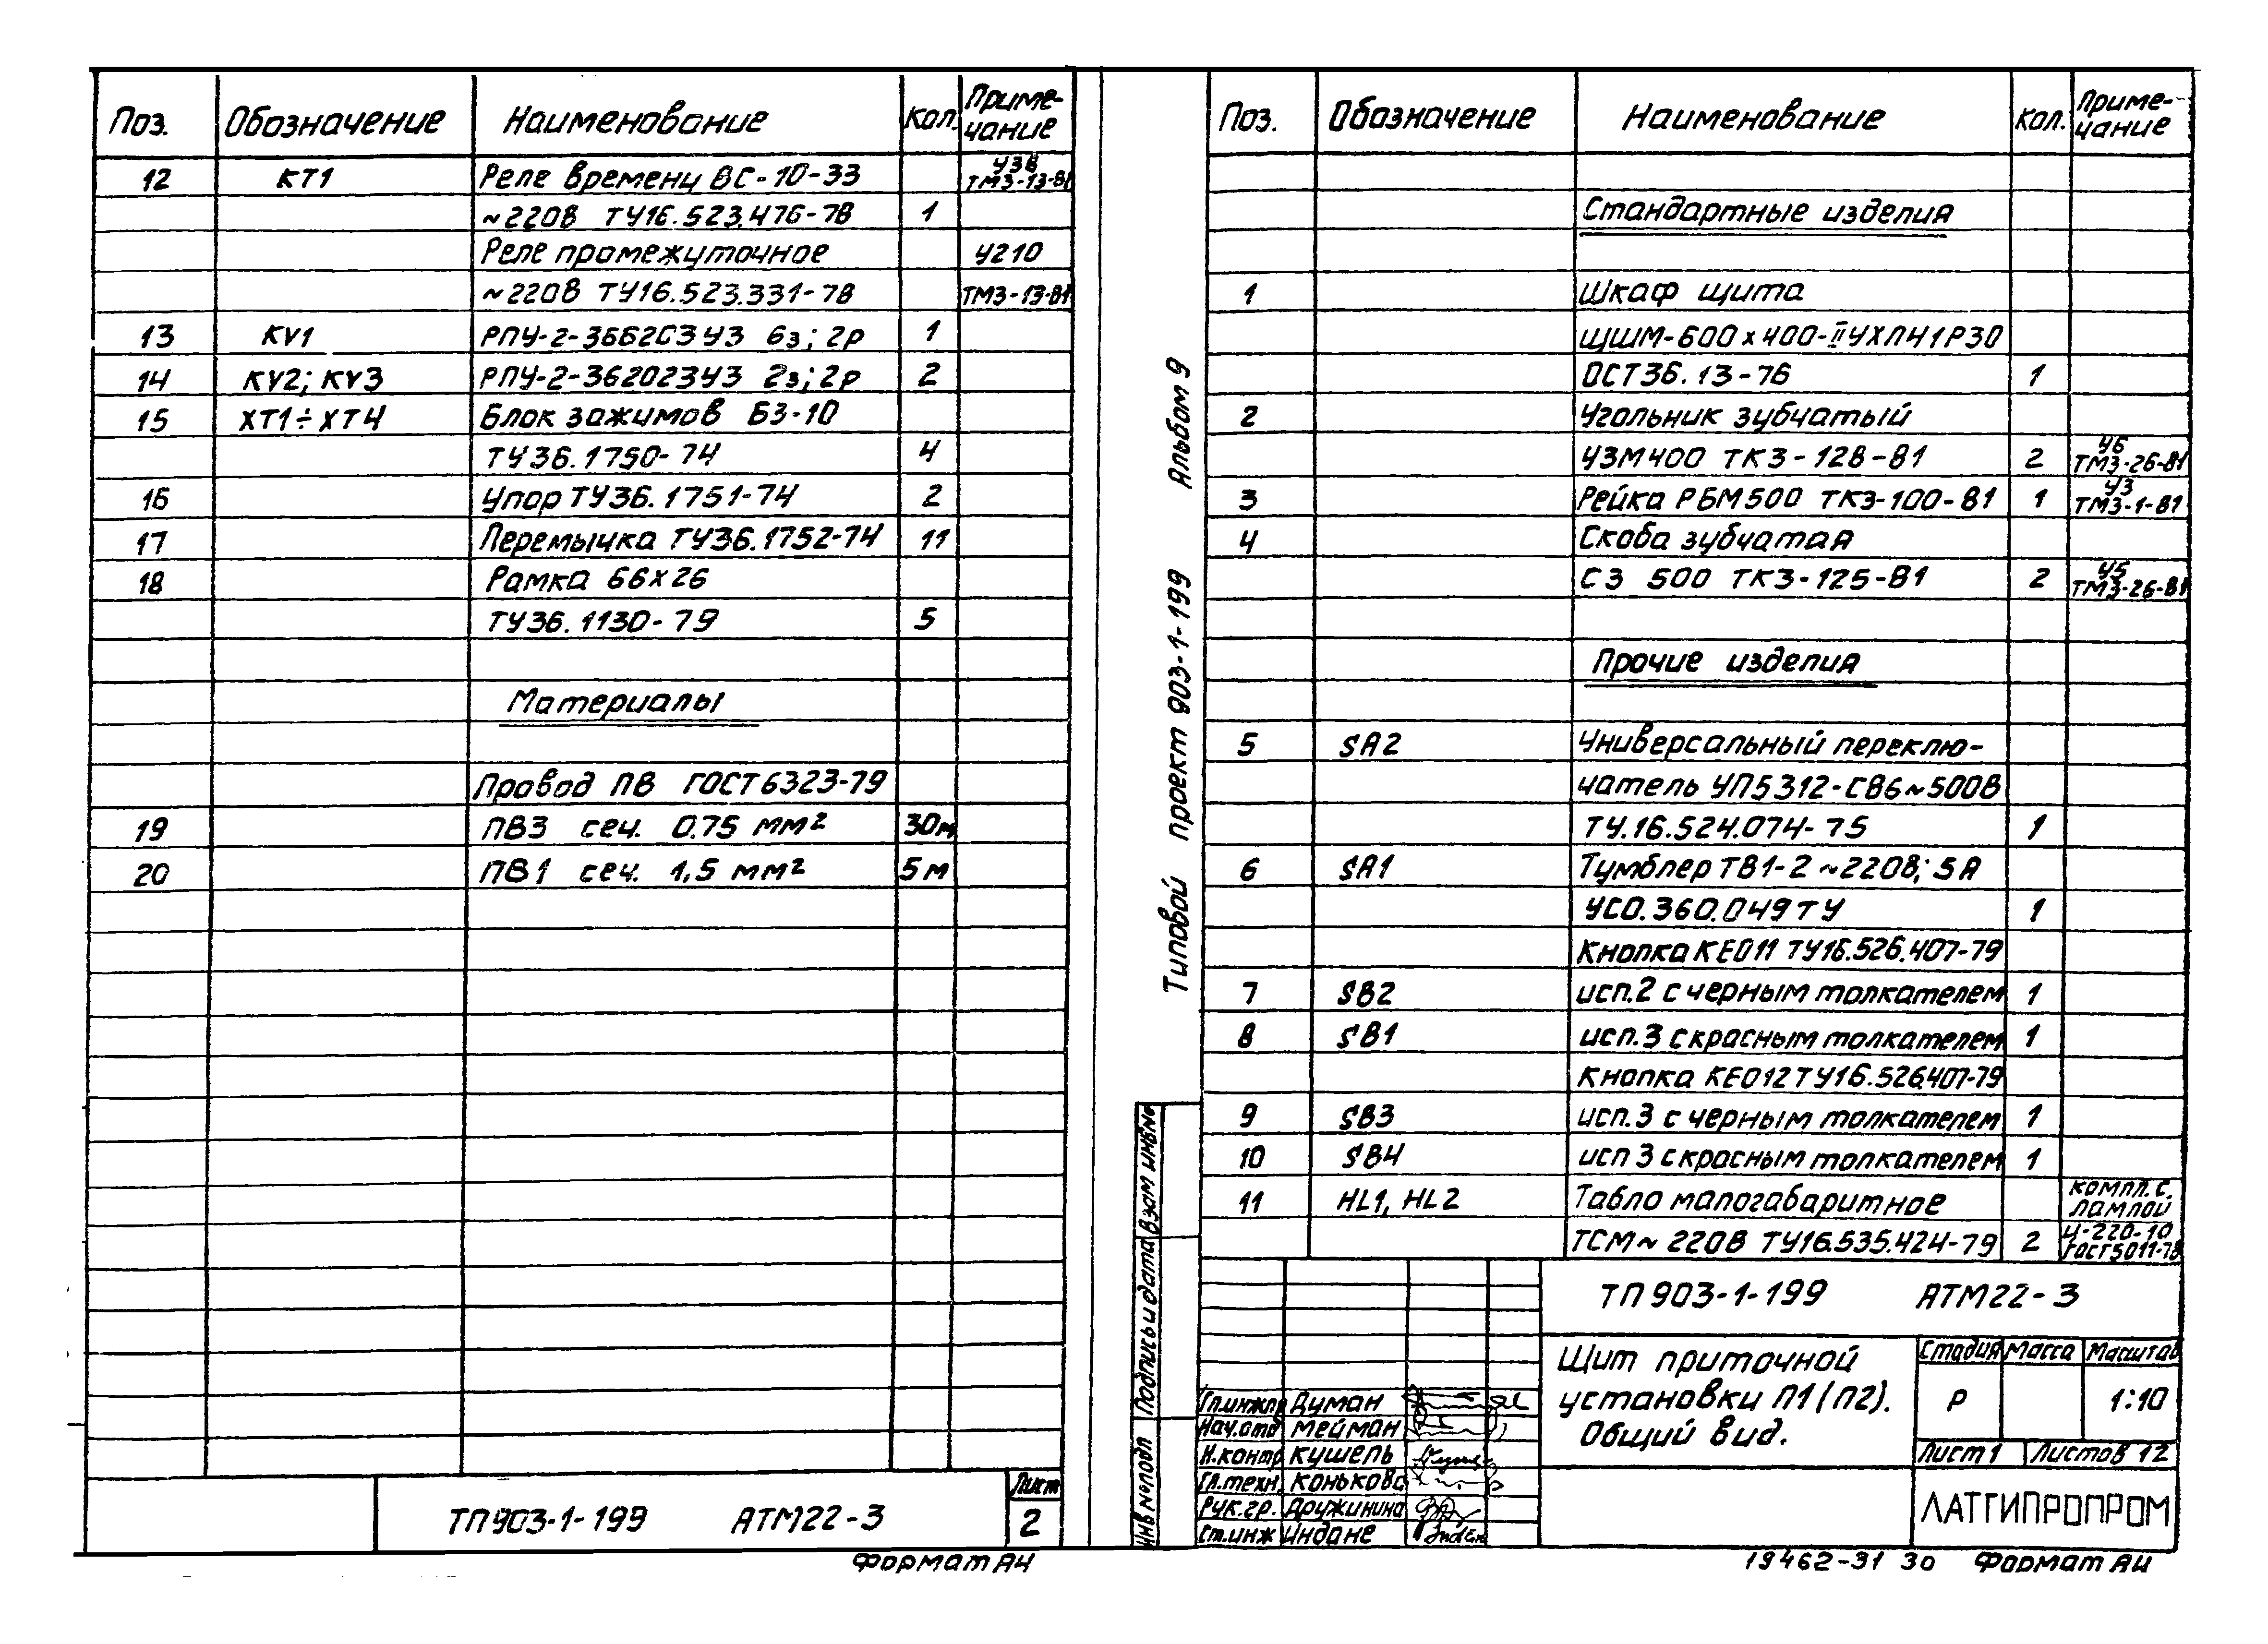 Поз. Обозначение Наименование Кол. Приме-
чание
12 КТ1 Реле времени ВС-10-33 У3В
ТМ3-13-81
~220В ТУ16.523.476-78 1
Реле промежуточное У210
~220В ТУ16.523.331-78 ТМ3-13-81
13 KV1 РПУ-2-366203У3 6з; 2р 1
14 KV2; KV3 РПУ-2-362023У3 2з; 2р 2
15 ХТ1÷ХТ4 Блок зажимов БЗ-10
ТУ36.1750-74 4
16 Упор ТУ36.1751-74 2
17 Перемычка ТУ36.1752-74 11
18 Рамка 66х26
ТУ36.1130-79 5
Материалы
Провод ПВ ГОСТ6323-79
19 ПВ3 сеч. 0.75 мм² 30м
20 ПВ1 сеч. 1,5 мм² 5м
ТП903-1-199 АТМ22-3
Лист
2
Формат А4
Альбом 9
Типовой проект 903-1-199
Взам инв№
Подпись и дата
Инв № подл
Поз. Обозначение Наименование Кол. Приме-
чание
Стандартные изделия
1 Шкаф щита
ЩШМ-600х400-IIУХЛ41Р30
ОСТ36.13-76 1
2 Угольник зубчатый
УЗМ400 ТК3-128-81 2 У6
ТМ3-26-81
3 Рейка РБМ500 ТК3-100-81 1 У3
ТМ3-1-81
4 Скоба зубчатая
СЗ 500 ТК3-125-81 2 У5
ТМ3-26-81
Прочие изделия
5 SA2 Универсальный переклю-
чатель УП5312-С86~500В
ТУ.16.524.074-75 1
6 SA1 Тумблер ТВ1-2 ~220В; 5А
УСО.360.049ТУ 1
Кнопка КЕ011 ТУ16.526.407-79
7 SB2 исп.2 с черным толкателем 1
8 SB1 исп.3 с красным толкателем 1
Кнопка КЕ012 ТУ16.526.407-79
9 SB3 исп.3 с черным толкателем 1
10 SB4 исп 3 с красным толкателем 1
11 HL1, HL2 Табло малогабаритное компл. с.
лампой
ТСМ~220В ТУ16.535.424-79 2 Ц-220-10
ГОСТ5011-78
ТП903-1-199 АТМ22-3
Щит приточной
установки П1(П2).
Общий вид.
Стадия Масса Масштаб
Р 1:10
Лист 1 Листов 12
Гл.инж.пр Думан
Нач.отд Мейман
Н.контр Кушель
Гл.техн. Конькова
Рук.гр. Дружинина
Ст.инж Индане
ЛАТГИПРОПРОМ
19462-31 30 Формат А4